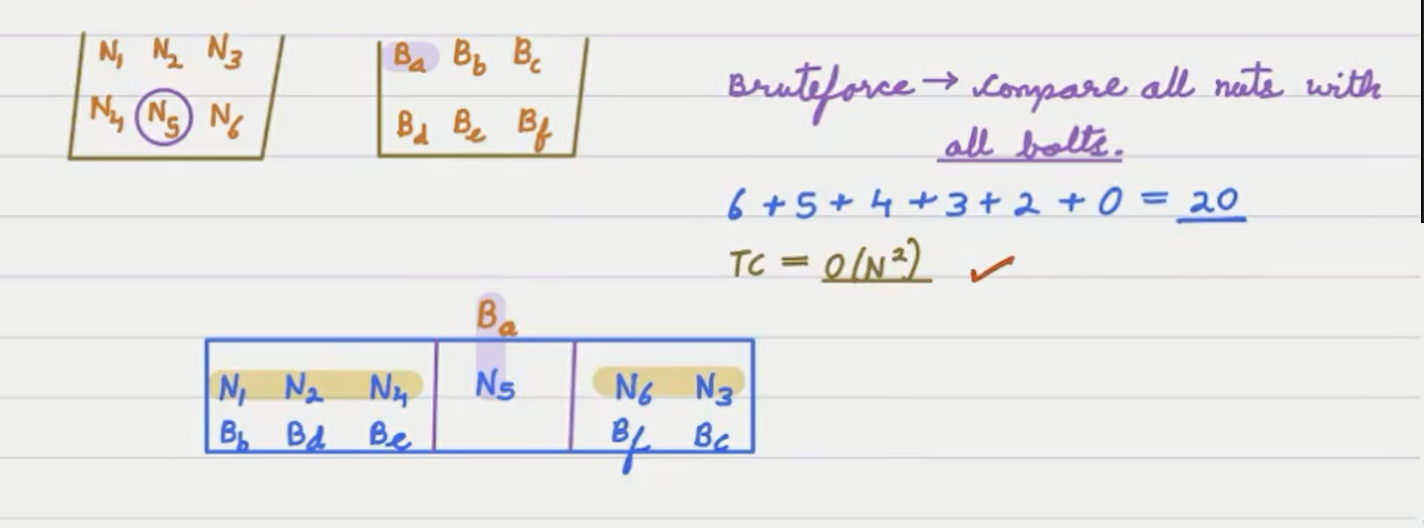 N₁ N₂ N₃
N₄ N₅ N₆
Bₐ B_b B_c
B_d Bₑ B_f
Bruteforce → compare all nuts with
all bolts.
6 + 5 + 4 + 3 + 2 + 0 = 20
TC = O(N²) ✓
Bₐ
N₁ N₂ N₄ N₅ N₆ N₃
B_b B_d Bₑ B_f B_c